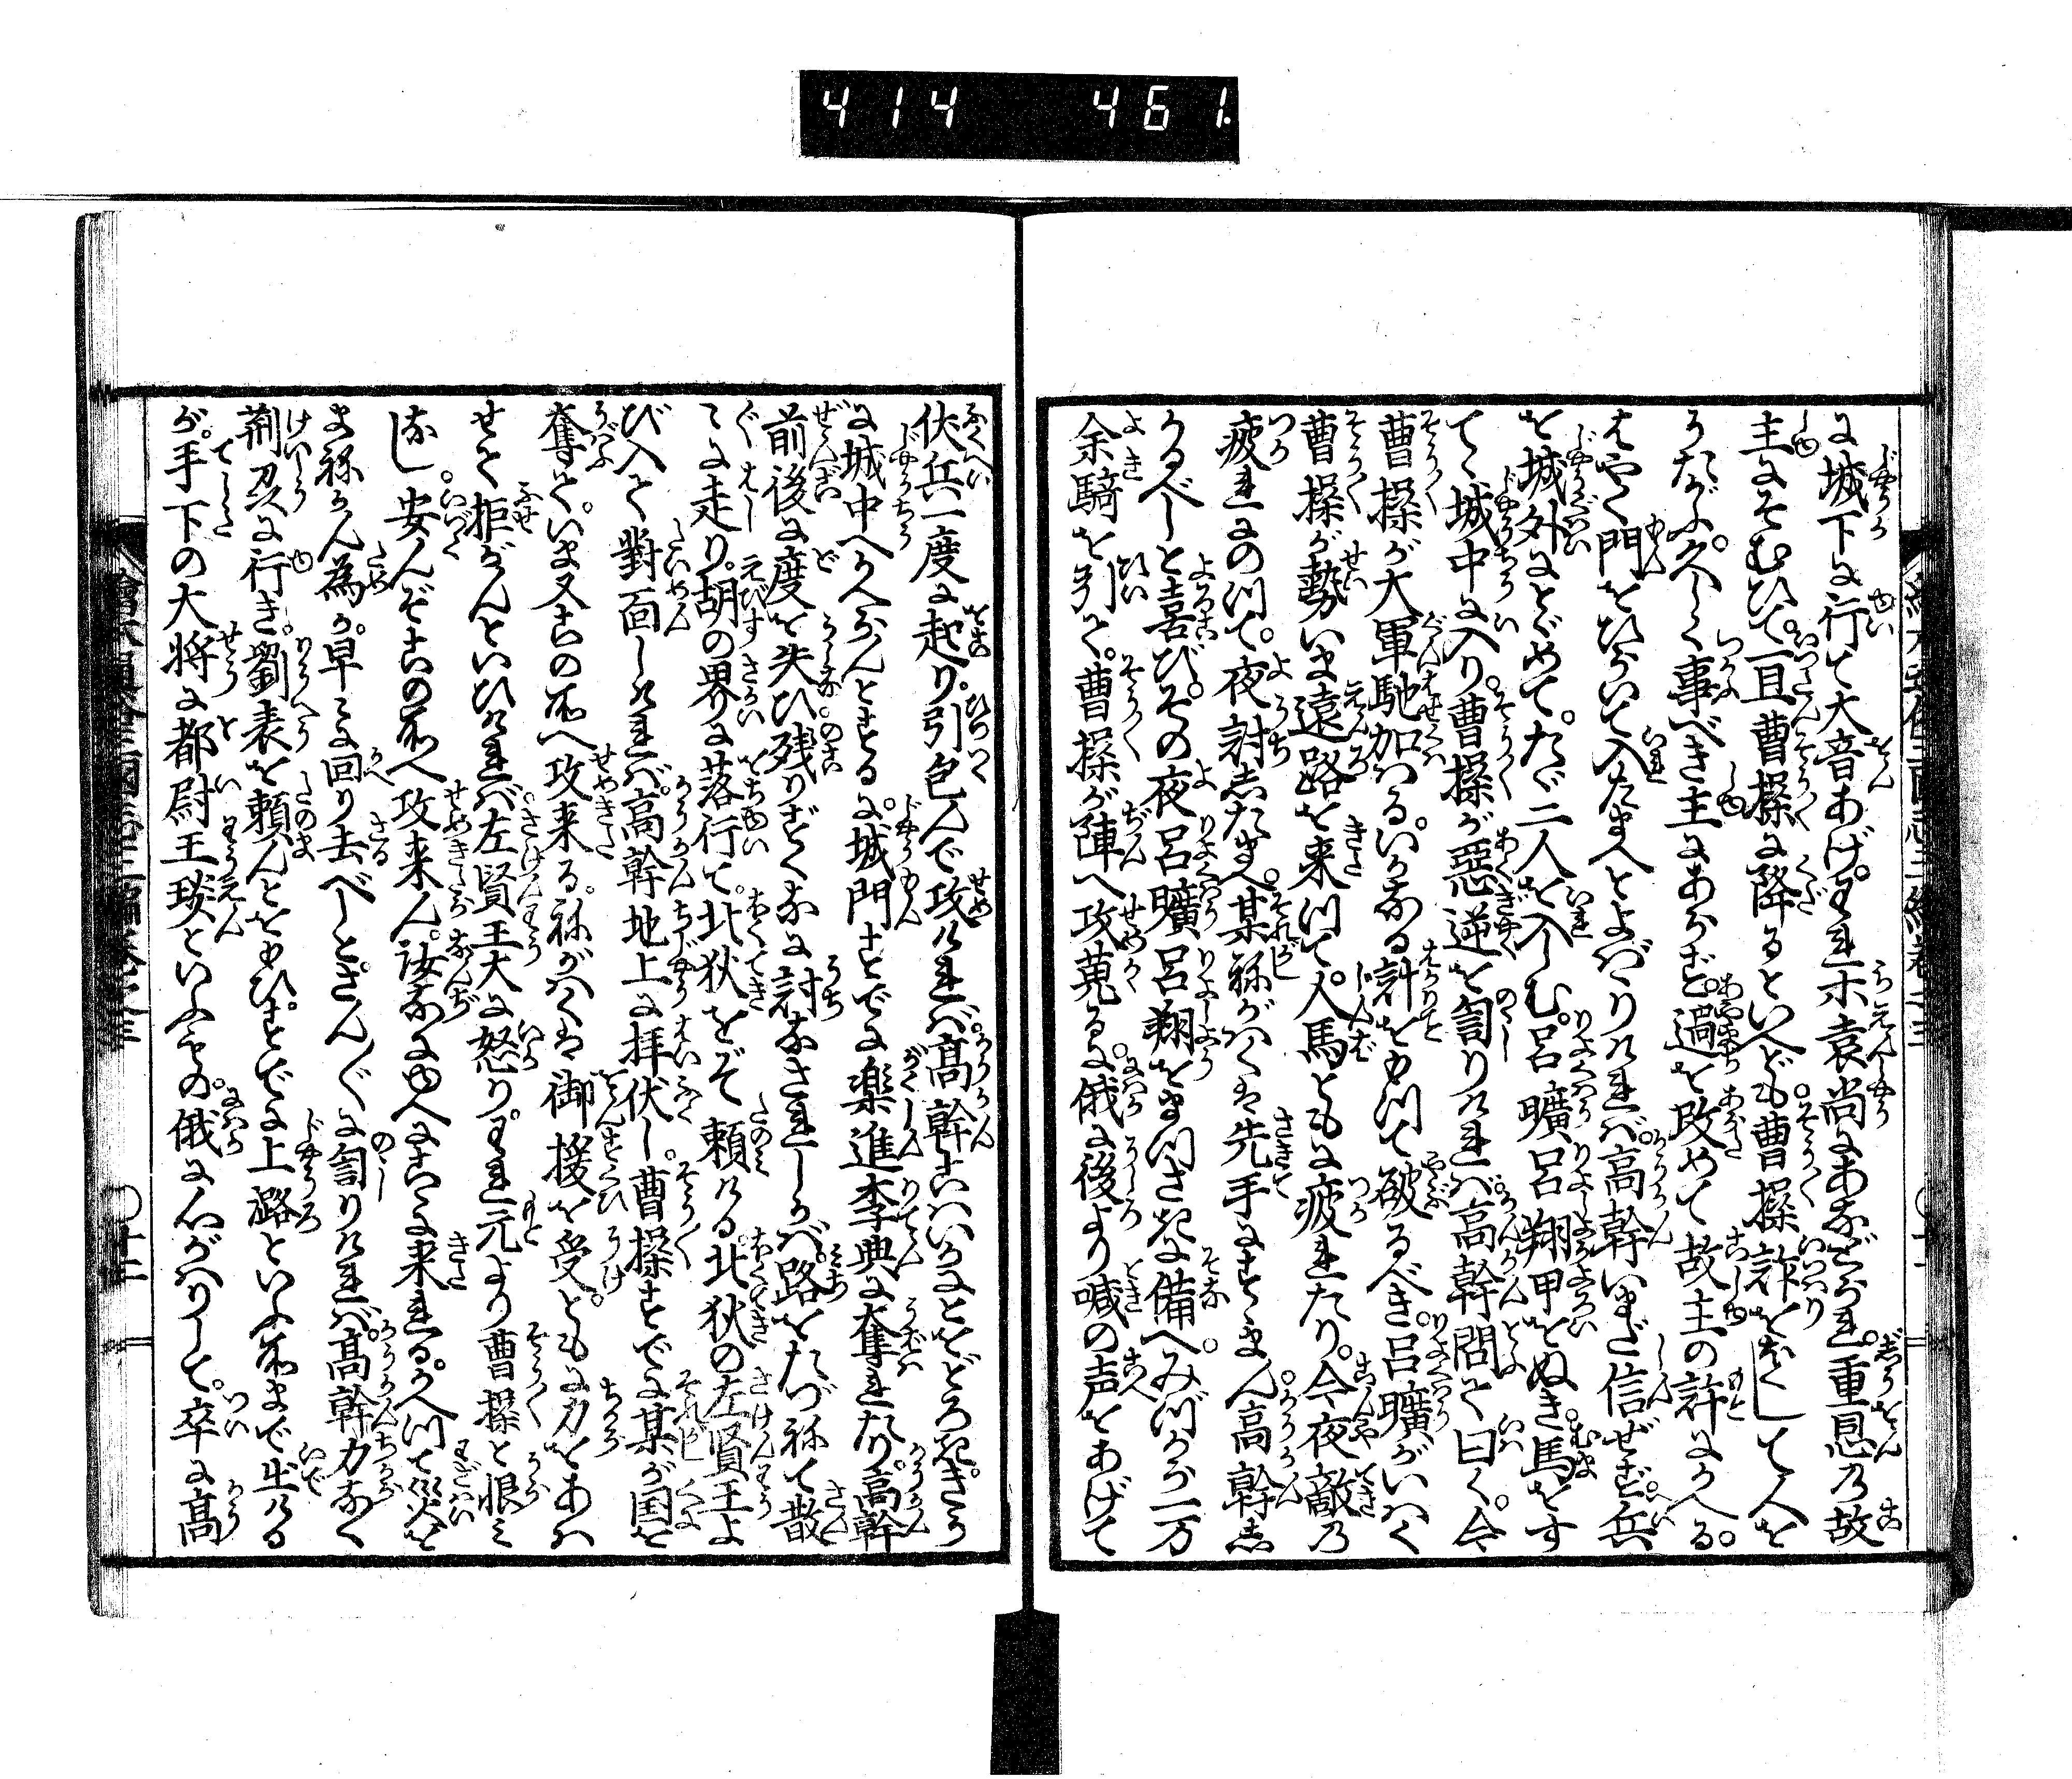 414 461.
に城下に行て大音あげ。われ〳〵袁尚にあなどられ。重恩の故
主にそむひて。一旦曹操に降るといへども。曹操詐をなして人を
うたがふ。久しく事べき主にあらず。過を改めて故主の許にかへる。
はやく門をひらいて入たまへとよばゝりければ。高幹いまだ信ぜず。兵
を城外にとゞめて。たゞ二人を入しむ。呂曠呂翔甲をぬき。馬をす
てゝ城中に入り。曹操が惡逆を訇りければ。高幹問て曰く。今
曹操が大軍馳加はる。いかなる計をもつて破るべき。呂曠がいはく
曹操が勢いま遠路を来つて。人馬ともに疲れたり。今夜敵の
疲れにのつて。夜討したまへ。某ねがはくは先手にすゝまん。高幹し
かるべしと喜び。その夜呂曠呂翔をまつさきに備へ。みづから一万
余騎を引て。曹操が陣へ攻蒐るに。俄に後より喊の声をあげて
伏兵一度に起り。引包んで攻ければ。高幹こはいかにとをどろき。きう
に城中へかへらんとするに。城門すでに楽進李典に奪れたり。高幹
前後に度を失ひ。残りずくなに討なされしかば。路をたづねて散
〴〵に走り。胡の界に落行て。北狄をぞ頼ける。北狄の左賢王よ
び入て對面しければ。高幹地上に拝伏し。曹操すでに某が国を
奪て。いま又この所へ攻来る。ねがはくは御援を受。ともに力をあは
せて拒がんといひければ。左賢王大に怒り。われ元より曹操と恨み
なし。安んぞこの所へ攻来ん。汝なにゆへにこゝに来れる。かへつて災を
まねかん為か。早々に回り去べしと。さん〴〵に訇りければ。高幹力なく
荊州に行き。劉表を頼んとをもひ。すでに上潞といふ所まで出ける
が。手下の大将に都尉王琰といふもの。俄に心がはりして。卒に高